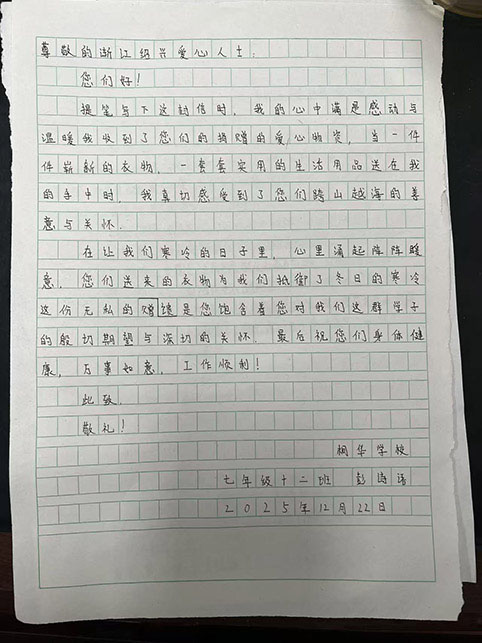 尊敬的浙江绍兴爱心人士：
您们好！
提笔写下这封信时，我的心中满是感动与
温暖我收到了您们的捐赠的爱心物资，当一件
件崭新的衣物，一套套实用的生活用品送在我
的手中时，我真切感受到了您们跨山越海的善
意与关怀.
在让我们寒冷的日子里，心里涌起阵阵暖
意，您们送来的衣物为我们抵御了冬日的寒冷
这份无私的赠 是您饱含着您对我们这群学子
的殷切期望与深切的关怀.最后祝您们身体健
康，万事如意，工作顺利！
此致.
敬礼！
桐华学校
七年级十二班 彭 语
2025年12月22日